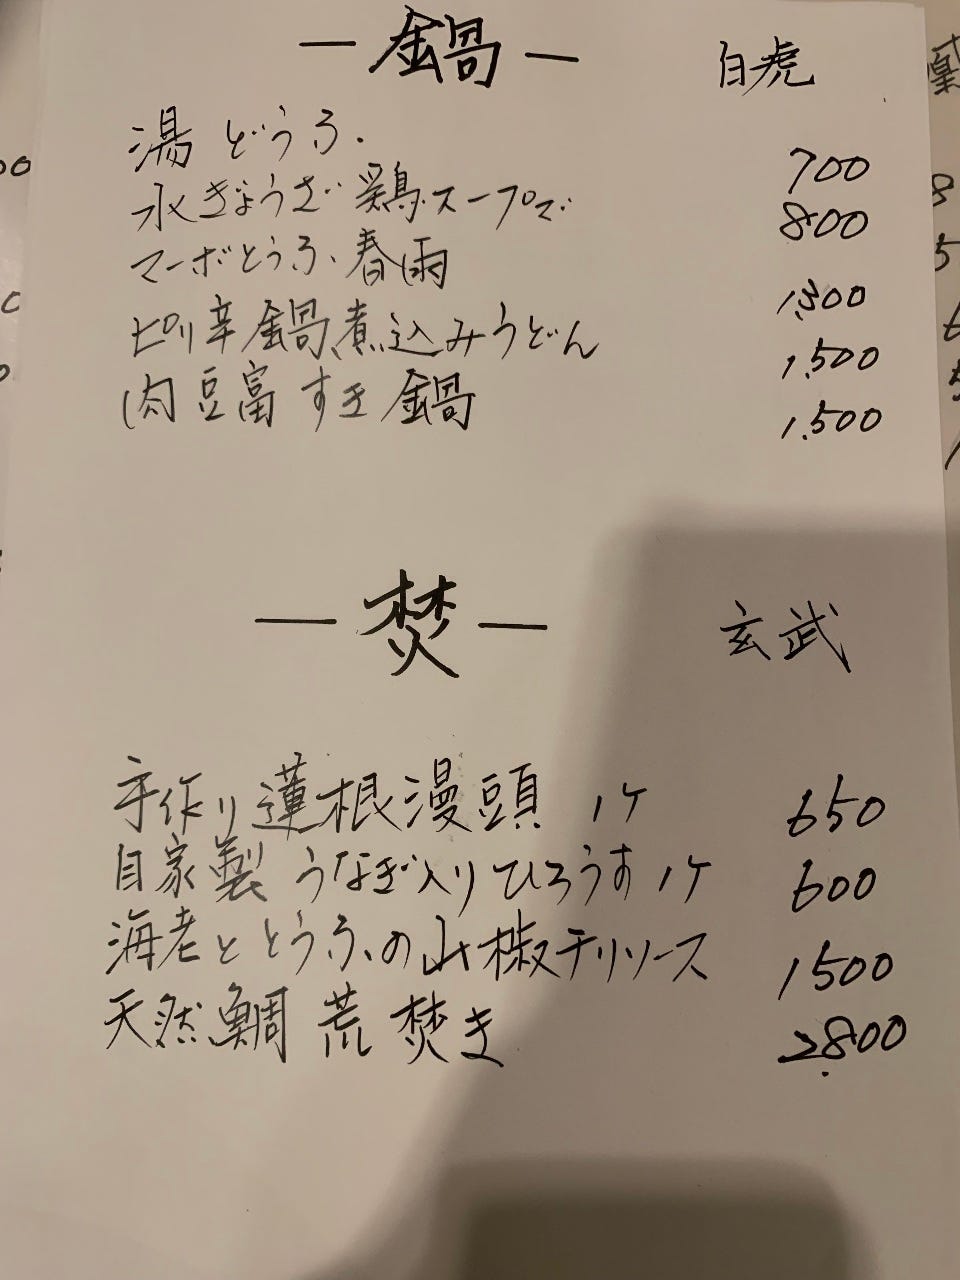 ー 鍋 ー 白虎
湯どうふ 700
水ぎょうざ 鶏スープで 800
マーボとうふ 春雨 1,300
ピリ辛鍋 煮込みうどん 1,500
肉豆富 すき鍋 1,500
ー 焚 ー 玄武
手作り蓮根漫頭 1ケ 650
自家製 うなぎ入りひろうす 1ケ 600
海老ととうふの山椒チリソース 1500
天然鯛 荒焚き 2,800